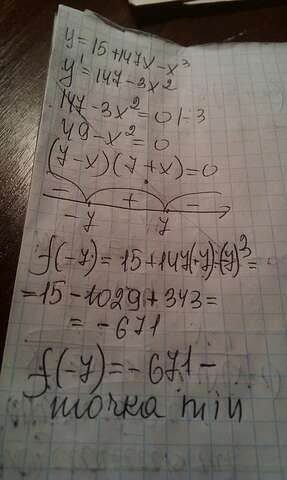 y = 15 + 147x - x³
y' = 147 - 3x²
147 - 3x² = 0 | : 3
49 - x² = 0
(7 - x)(7 + x) = 0
- + -
-7 7
f(-7) = 15 + 147(-7) - (-7)³ =
= 15 - 1029 + 343 =
= -671
f(-7) = -671 -
точка min